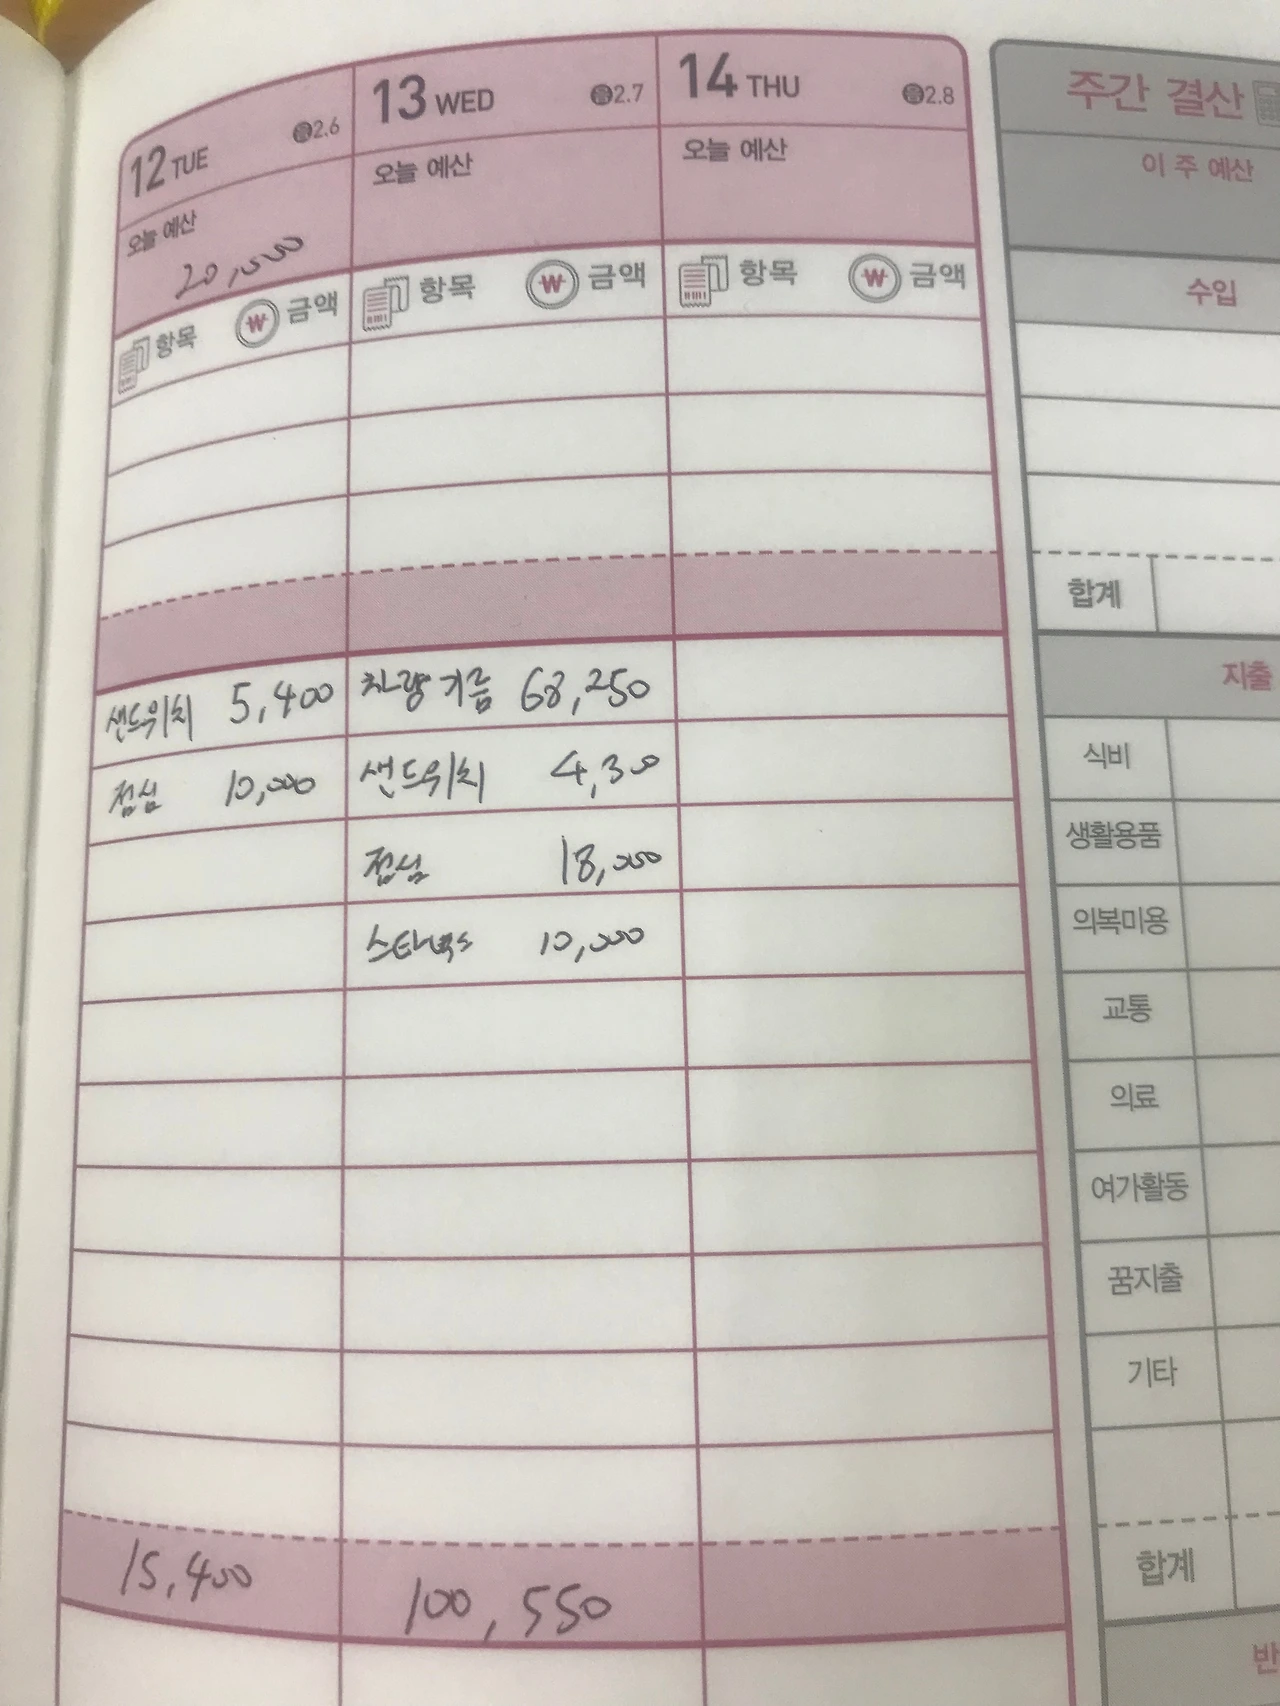 12 TUE 음2.6
13 WED 음2.7
14 THU 음2.8
주간 결산
오늘 예산
오늘 예산
오늘 예산
이 주 예산
20,000
항목 ₩ 금액
항목 ₩ 금액
항목 ₩ 금액
수입
합계
지출
샌드위치 5,400
차량기름 68,250
식비
점심 10,000
샌드위치 4,300
생활용품
점심 18,000
의복미용
스타벅스 10,000
교통
의료
여가활동
꿈지출
기타
합계
15,400
100,550
반